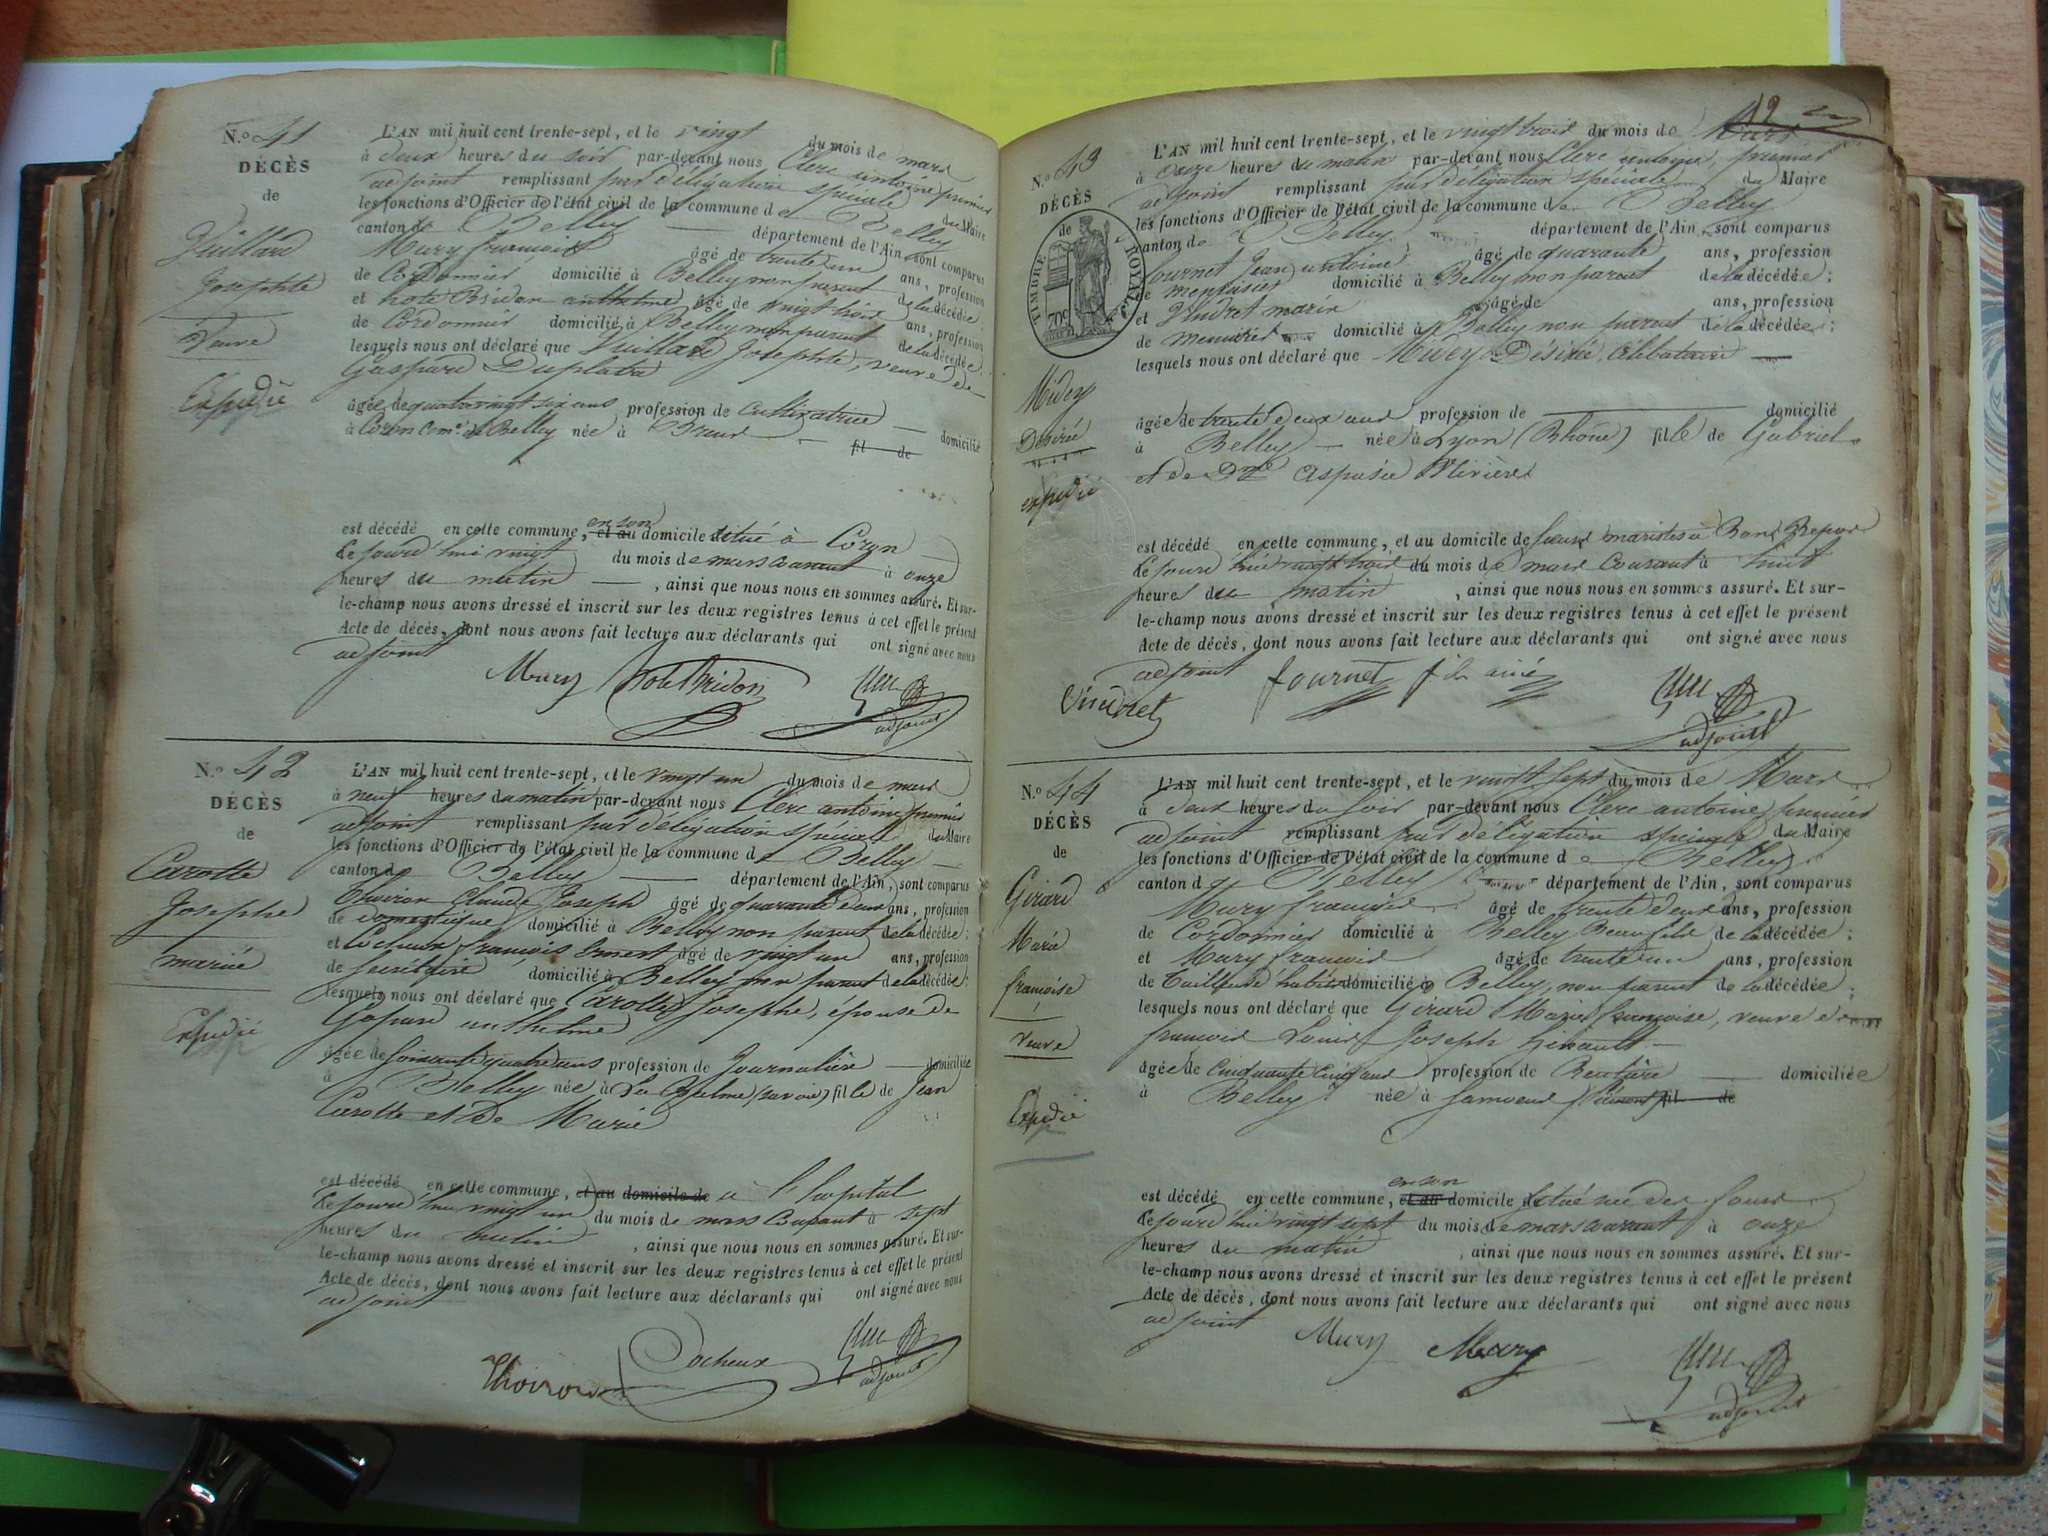 N.o 41
DÉCÈS
de
Vuillard
Josephte
Veuve
Expedié
L'AN mil huit cent trente-sept, et le vingt du mois de mars
à deux heures du soir par-devant nous Clerc antoine premier
adjoint remplissant par délégation spéciale du Maire
les fonctions d'Officier de l'état civil de la commune de Belley
canton de Belley département de l'Ain, sont comparus
Mury françois âgé de trente un ans, profession
de Cordonnier domicilié à Belley non parent de la décédée;
et hote Bridon anthelme âgé de vingt trois ans, profession
de Cordonnier domicilié à Belley non parent de la décédée;
lesquels nous ont déclaré que Vuillard Josephte, veuve de
Gaspard Duplatre
âgée de quatre vingt six ans profession de Cultivatrice domicilié
à Coron Com.e de Belley née à Brens fil de
est décédé en cette commune, en son et au domicile situé à Coron
Ce jourd'hui vingt du mois de mars courant à onze
heures du matin, ainsi que nous nous en sommes assuré. Et sur-
le-champ nous avons dressé et inscrit sur les deux registres tenus à cet effet le présent
Acte de décès, dont nous avons fait lecture aux déclarants qui ont signé avec nous
adjoint
Mury hote Bridon Clerc
adjoint
N.o 42
DÉCÈS
de
Carotte
Josephe
mariée
Expedié
L'AN mil huit cent trente-sept, et le vingt un du mois de mars
à neuf heures du matin par-devant nous Clerc antoine premier
adjoint remplissant par délégation spéciale du Maire
les fonctions d'Officier de l'état civil de la commune de Belley
canton de Belley département de l'Ain, sont comparus
Thoiron Claude Joseph âgé de quarante deux ans, profession
de domestique domicilié à Belley non parent de la décédée;
et Cocheux françois Ernest âgé de vingt un ans, profession
de secrétaire domicilié à Belley non parent de la décédée;
lesquels nous ont déclaré que Carotte Josephe, épouse de
Gopard anthelme
âgée de soixante quatre ans profession de Journalière domiciliée
à Belley née à La Balme (savoie) fille de Jean
Carotte et de Marie
est décédé en cette commune, et au domicile de à l'hopital
Ce jourd'hui vingt un du mois de mars Courant à sept
heures du matin, ainsi que nous nous en sommes assuré. Et sur-
le-champ nous avons dressé et inscrit sur les deux registres tenus à cet effet le présent
Acte de décès, dont nous avons fait lecture aux déclarants qui ont signé avec nous
adjoint
Thoiron Cocheux Clerc
adjoint
12
N.o 43
DÉCÈS
de
TIMBRE ROYAL
70c
Midey
Désirée
expedié
L'AN mil huit cent trente-sept, et le vingt trois du mois de Mars
à onze heures du matin par-devant nous Clerc antoine, premier
adjoint remplissant par délégation spéciale du Maire
les fonctions d'Officier de l'état civil de la commune de Belley
canton de Belley département de l'Ain, sont comparus
fournet Jean antoine âgé de quarante ans, profession
de menuisier domicilié à Belley non parent de la décédée;
et Vindret marin âgé de ans, profession
de menuisier domicilié à Belley non parent de la décédée;
lesquels nous ont déclaré que Midey Désirée, Célibataire
âgée de trente deux ans profession de domicilié
à Belley née à Lyon (Rhône) fille de Gabriel
et de Dme Aspasie
est décédé en cette commune, et au domicile de soeurs maristes à Bon Repos
Ce jourd'hui vingt trois du mois de mars Courant à huit
heures du matin, ainsi que nous nous en sommes assuré. Et sur-
le-champ nous avons dressé et inscrit sur les deux registres tenus à cet effet le présent
Acte de décès, dont nous avons fait lecture aux déclarants qui ont signé avec nous
adjoint
Vindret fournet fils ainé Clerc
adjoint
N.o 44
DÉCÈS
de
Girard
Marie
françoise
Veuve
Expedié
L'AN mil huit cent trente-sept, et le vingt sept du mois de Mars
à deux heures du soir par-devant nous Clerc antoine, premier
adjoint remplissant par délégation spéciale du Maire
les fonctions d'Officier de l'état civil de la commune de Belley
canton d Belley département de l'Ain, sont comparus
Mury françois âgé de trente deux ans, profession
de Cordonnier domicilié à Belley Beau fils de la décédée;
et Mury françois âgé de trente un ans, profession
de Tailleur d'habits domicilié à Belley, non parent de la décédée;
lesquels nous ont déclaré que Girard Marie françoise, veuve de
françois Louis Joseph hénault
âgée de Cinquante Cinq ans profession de Rentière domiciliée
à Belley née à Samoens fil de
est décédé en cette commune, en son et au domicile situé rue des fours
Ce jourd'hui vingt sept du mois de mars courant à onze
heures du matin, ainsi que nous nous en sommes assuré. Et sur-
le-champ nous avons dressé et inscrit sur les deux registres tenus à cet effet le présent
Acte de décès, dont nous avons fait lecture aux déclarants qui ont signé avec nous
adjoint
Mury Mury Clerc
adjoint